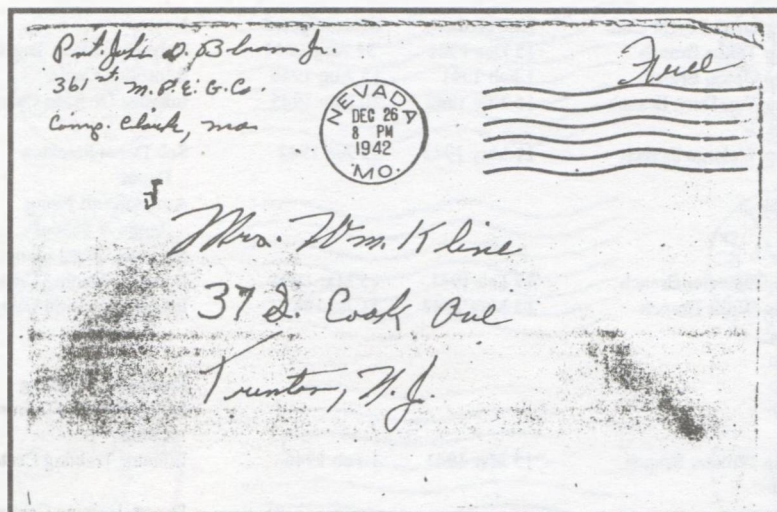 Pvt. John D. Bloam Jr.
361st M.P.E.G. Co.
Camp. Clark, Mo
Free
NEVADA
DEC 26
8 PM
1942
MO.
Mrs. Wm. Kline
37 S. Cook Ave
Trenton, N.J.